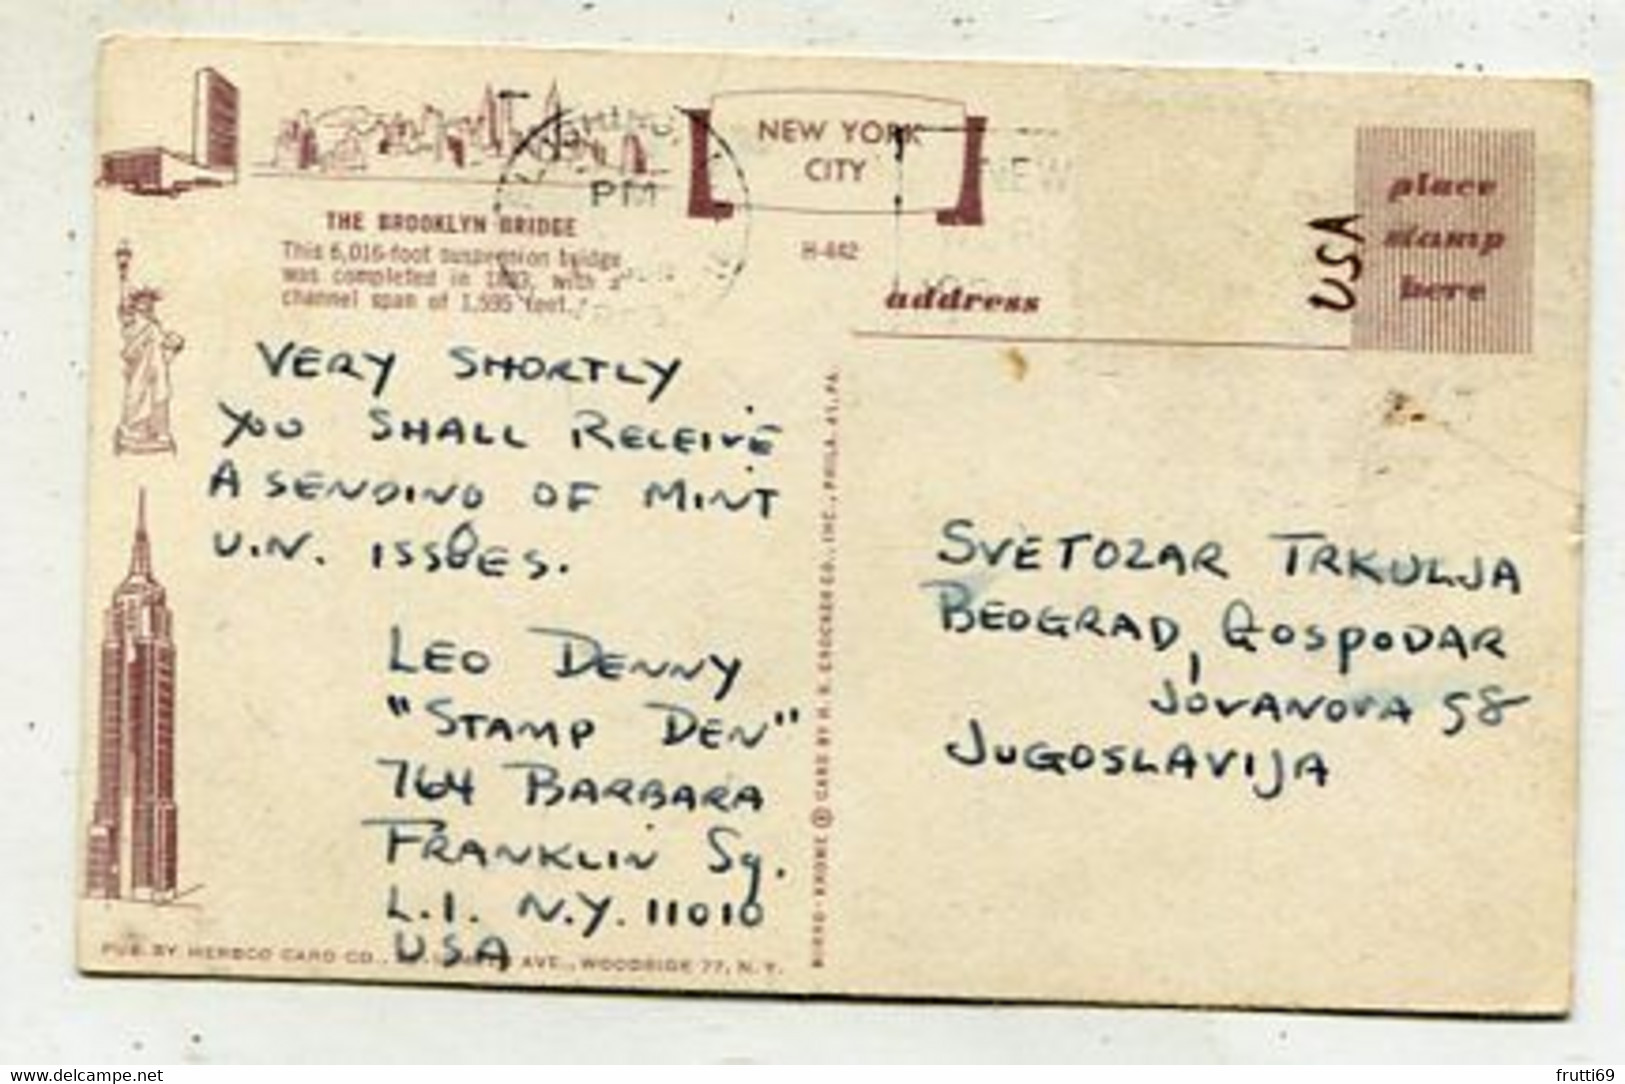 NEW YORK
CITY
H-442
THE BROOKLYN BRIDGE
This 6,016-foot suspension bridge
was completed in 1883, with a
channel span of 1,595 feet.
PM
NEW
address
USA
place
stamp
here
VERY SHORTLY
YOU SHALL RECEIVE
A SENDING OF MINT
U.N. ISSUES.
LEO DENNY
"STAMP DEN"
764 BARBARA
FRANKLIN Sq.
L.I. N.Y. 11010
USA
SVETOZAR TRKULJA
BEOGRAD, GOSPODAR
JOVANOVA 58
JUGOSLAVIJA
PUB. BY HERBCO CARD CO., AVE., WOODSIDE 77, N. Y.
CARD BY H. S. CROCKER CO., INC., PHILA. 45, PA.
Postcards for sale on Delcampe.net
frutti69